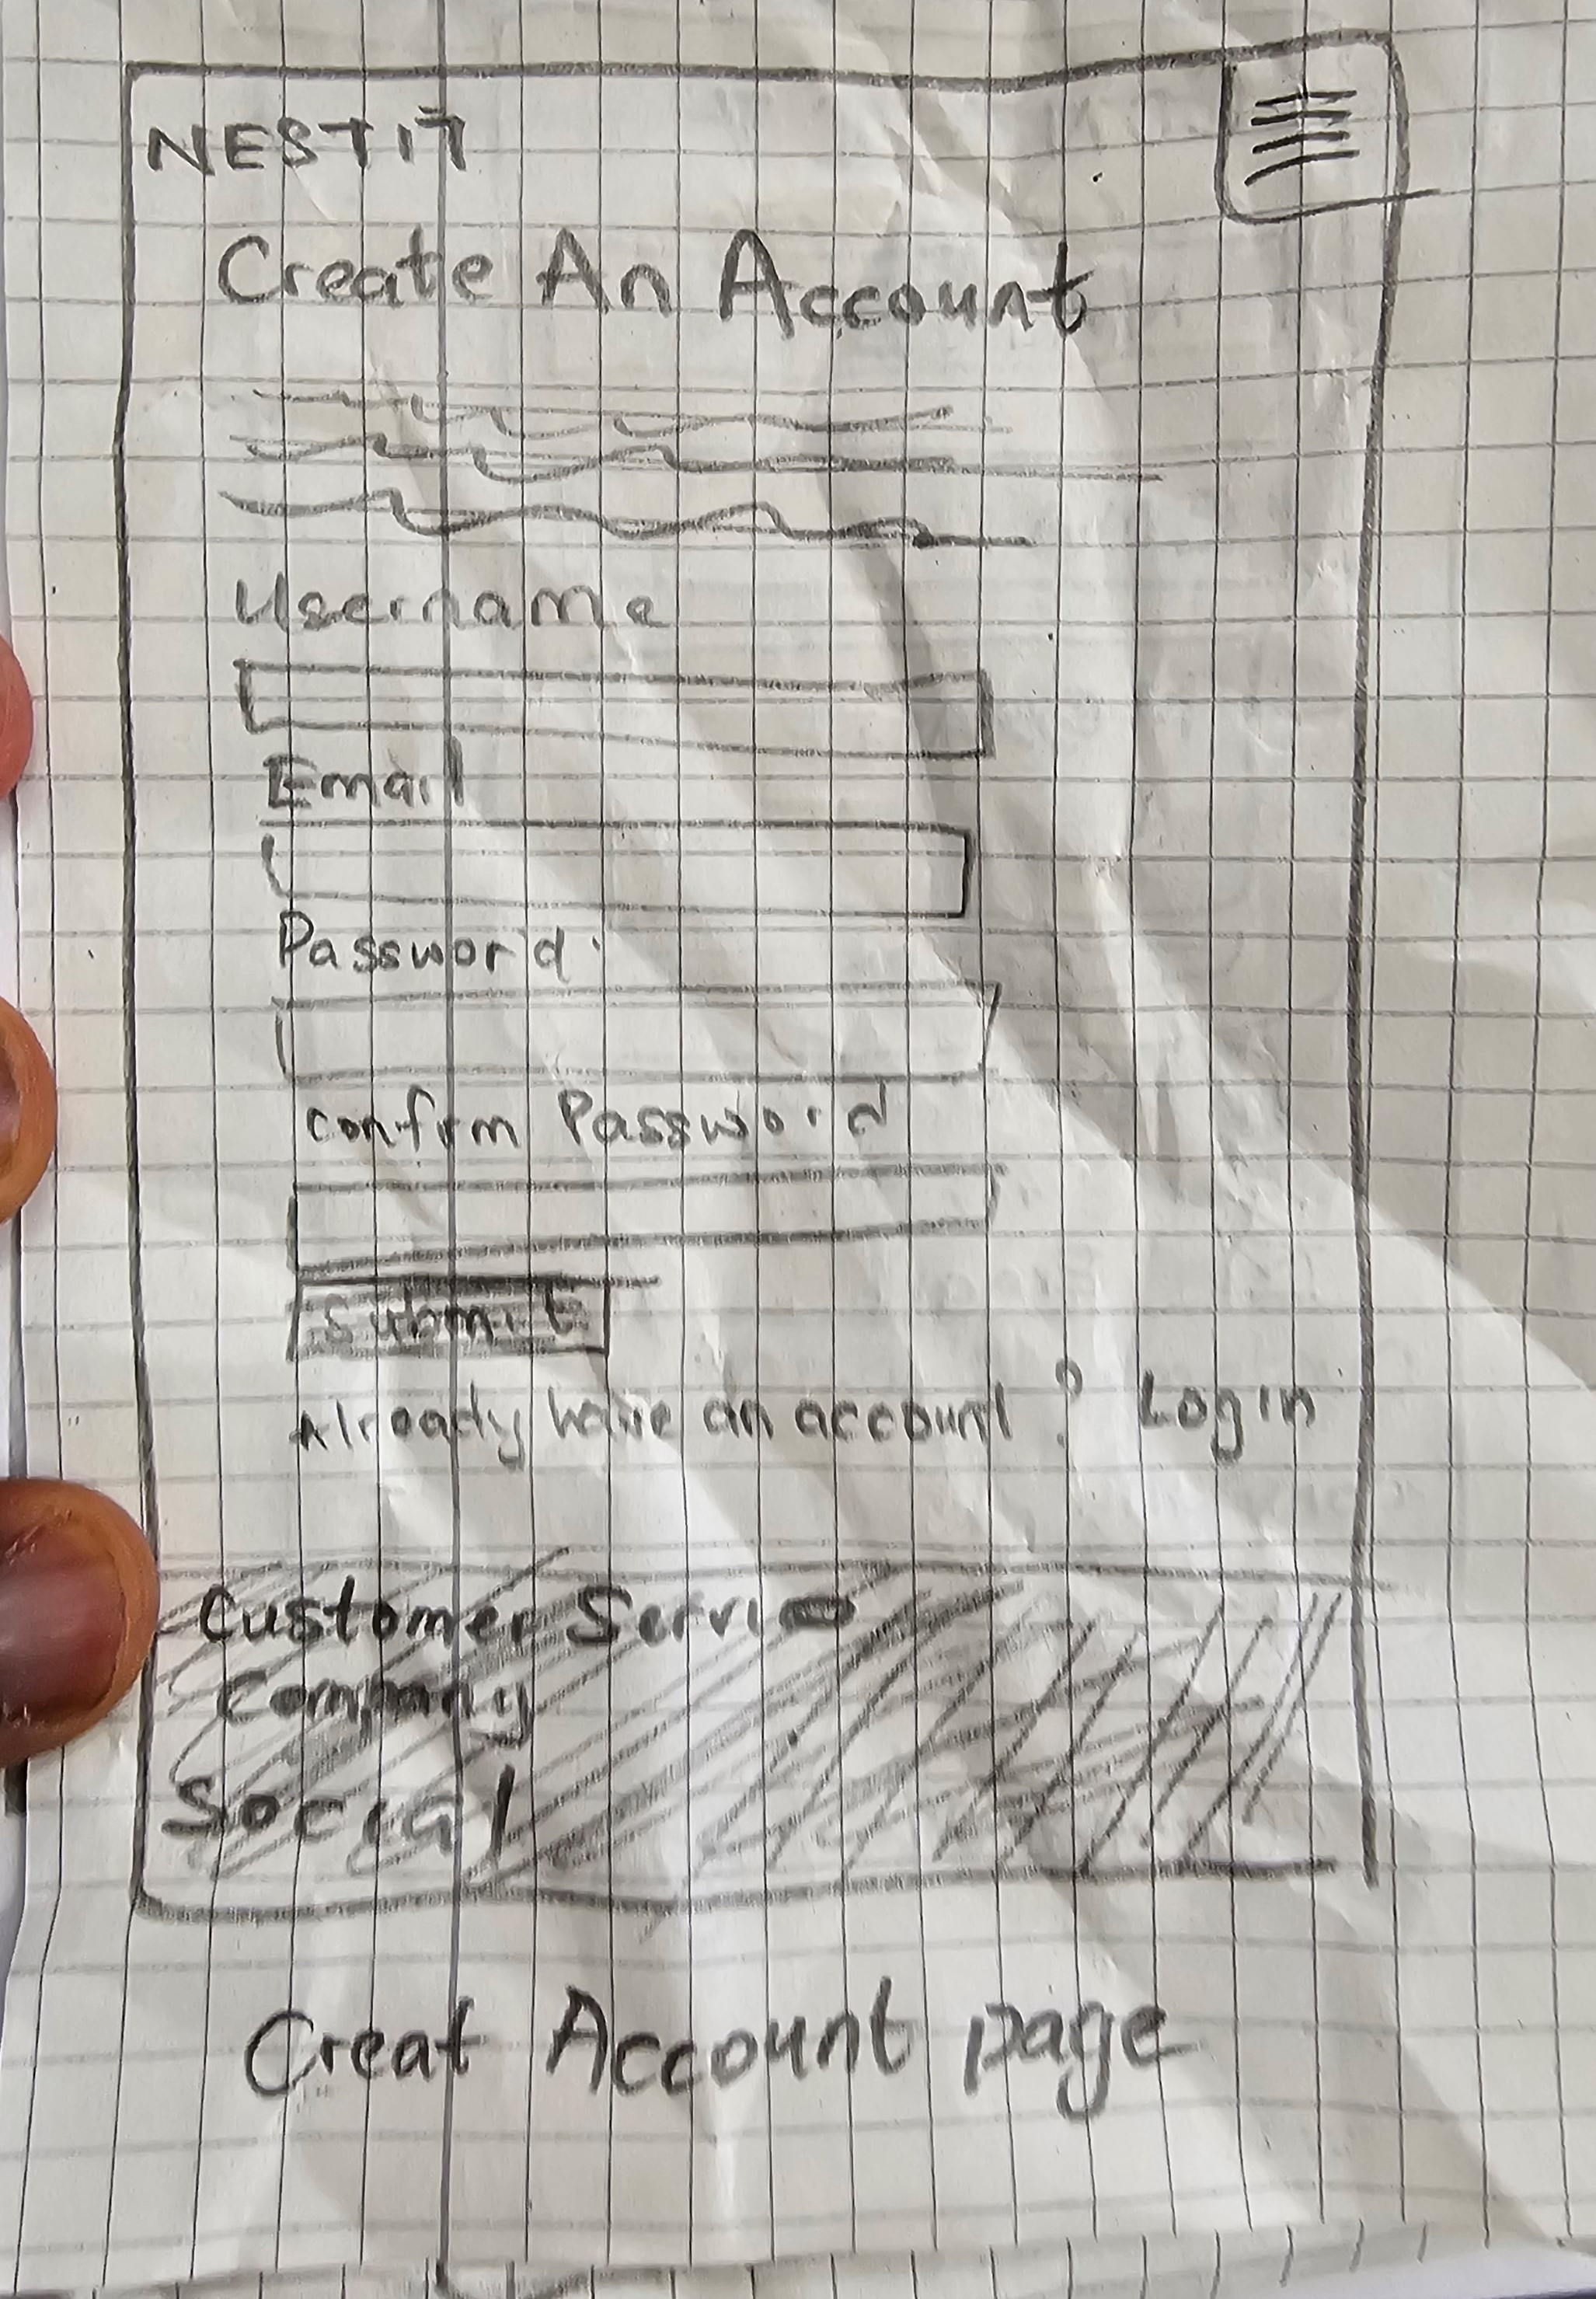 NESTIT
Create An Account
Username
Email
Password
Confirm Password
Submit
Already have an account? Login
Customer
Company
Social
Creat Account page